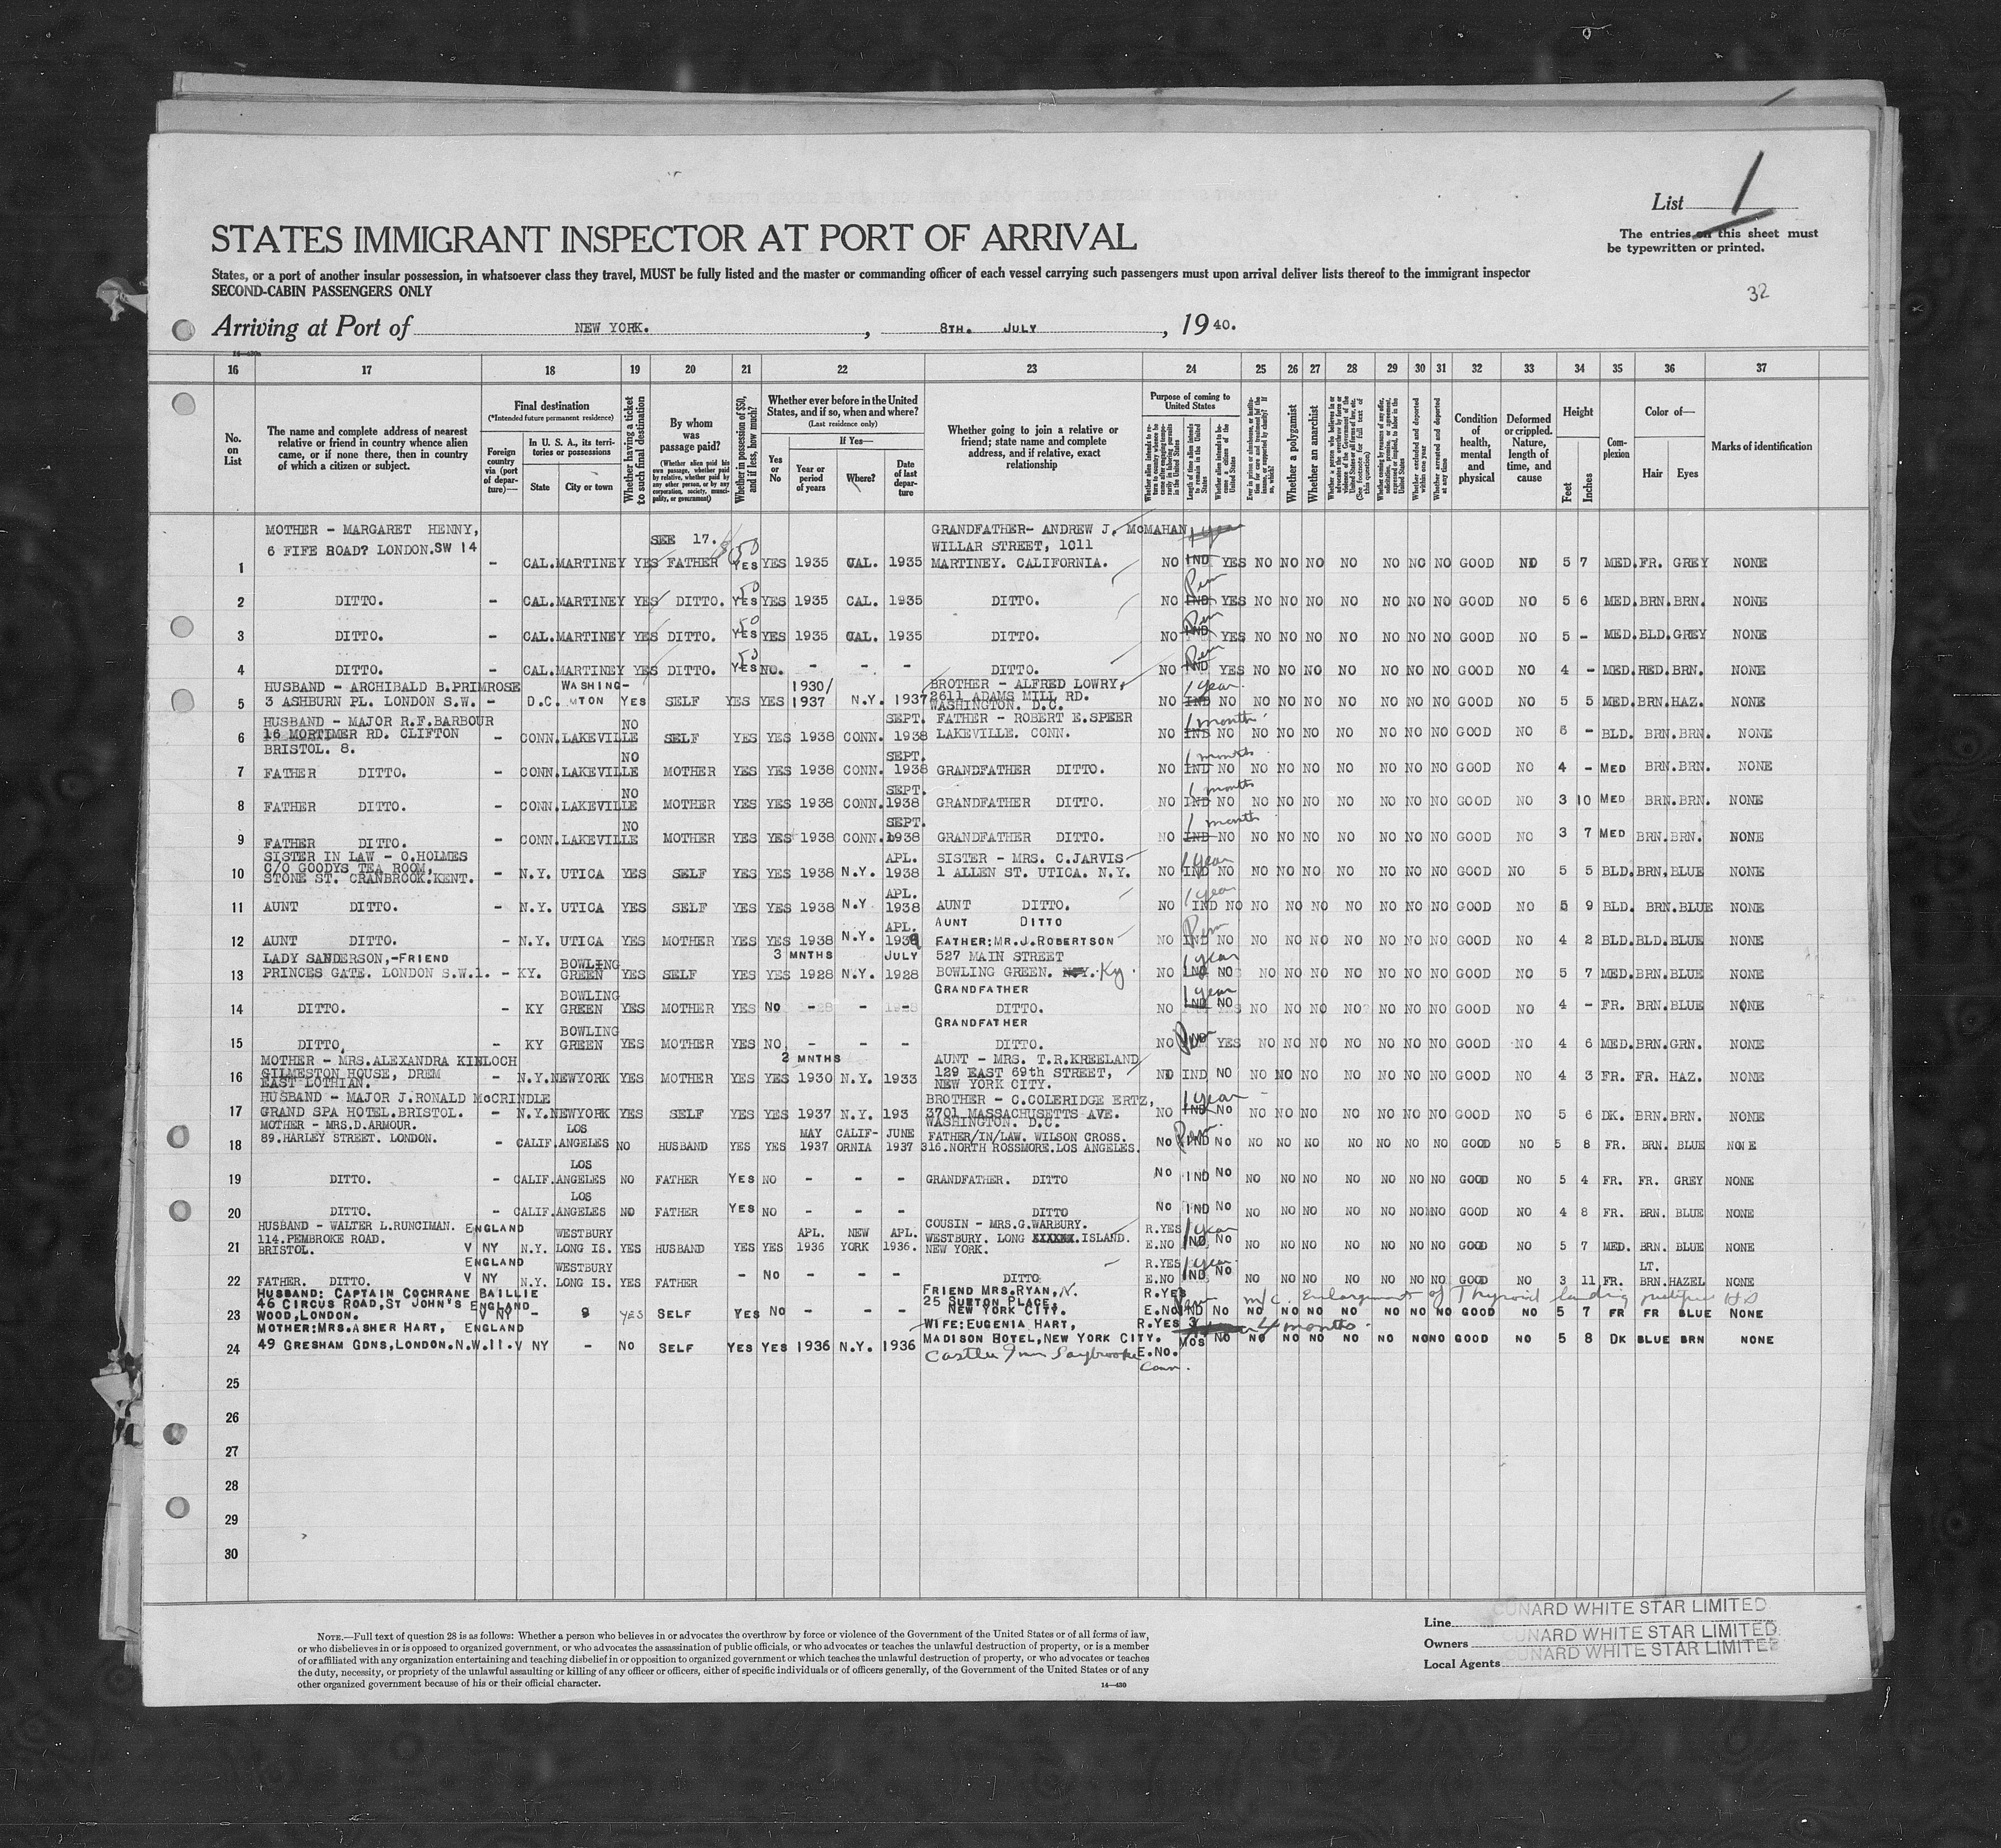 List 1
The entries on this sheet must
be typewritten or printed.
32
STATES IMMIGRANT INSPECTOR AT PORT OF ARRIVAL
States, or a port of another insular possession, in whatsoever class they travel, MUST be fully listed and the master or commanding officer of each vessel carrying such passengers must upon arrival deliver lists thereof to the immigrant inspector
SECOND-CABIN PASSENGERS ONLY
Arriving at Port of NEW YORK. , 8TH. JULY , 19 40.
16 17 18 19 20 21 22 23 24 25 26 27 28 29 30 31 32 33 34 35 36 37
No. on List
The name and complete address of nearest relative or friend in country whence alien came, or if none there, then in country of which a citizen or subject.
Final destination
(*Intended future permanent residence)
Foreign country via (port of departure)—
In U. S. A., its territories or possessions
State City or town
Whether having a ticket to such final destination
By whom was passage paid?
(Whether alien paid his own passage, whether paid by relative, whether paid by any other person, or by any corporation, society, municipality, or government)
Whether in possession of $50, and if less, how much?
Whether ever before in the United States, and if so, when and where?
(Last residence only)
Yes or No
If Yes—
Year or period of years Where? Date of last departure
Whether going to join a relative or friend; state name and complete address, and if relative, exact relationship
Purpose of coming to United States
Length of time alien intends to remain in the United States
Whether alien intends to become a citizen of the United States
Whether a polygamist
Whether an anarchist
Whether excluded and deported within one year
Whether arrested and deported at any time
Condition of health, mental and physical
Deformed or crippled. Nature, length of time, and cause
Height
Feet Inches
Complexion
Color of—
Hair Eyes
Marks of identification
MOTHER - MARGARET HENNY, GRANDFATHER- ANDREW J. McMAHAN 1 year
6 FIFE ROAD? LONDON.SW 14 SEE 17. 50 WILLAR STREET, 1011
1 - CAL. MARTINEY YES FATHER YES YES 1935 CAL. 1935 MARTINEY. CALIFORNIA. NO IND YES NO NO NO NO NO NO NO GOOD NO 5 7 MED. FR. GREY NONE
50 Perm
2 DITTO. - CAL. MARTINEY YES DITTO. YES YES 1935 CAL. 1935 DITTO. NO IND YES NO NO NO NO NO NO NO GOOD NO 5 6 MED. BRN. BRN. NONE
50 Perm
3 DITTO. - CAL. MARTINEY YES DITTO. YES YES 1935 CAL. 1935 DITTO. NO IND YES NO NO NO NO NO NO NO GOOD NO 5 - MED. BLD. GREY NONE
50 Perm
4 DITTO. - CAL. MARTINEY YES DITTO. YES NO. - - - DITTO. NO IND YES NO NO NO NO NO NO NO GOOD NO 4 - MED. RED. BRN. NONE
HUSBAND - ARCHIBALD B.PRIMROSE WASHING- 1930/ BROTHER - ALFRED LOWRY, 1 year
5 3 ASHBURN PL. LONDON S.W. - D.C. MTON YES SELF YES YES 1937 N.Y. 1937 2611 ADAMS MILL RD. NO IND NO NO NO NO NO NO NO NO GOOD NO 5 5 MED. BRN. HAZ. NONE
WASHINGTON. D.C.
HUSBAND - MAJOR R.F.BARBOUR NO SEPT. FATHER - ROBERT E.SPEER 1 months
6 16 MORTIMER RD. CLIFTON - CONN. LAKEVILLE SELF YES YES 1938 CONN. 1938 LAKEVILLE. CONN. NO IND NO NO NO NO NO NO NO NO GOOD NO 5 - BLD. BRN. BRN. NONE
BRISTOL. 8.
NO SEPT. 1 months
7 FATHER DITTO. - CONN. LAKEVILLE MOTHER YES YES 1938 CONN. 1938 GRANDFATHER DITTO. NO IND NO NO NO NO NO NO NO NO GOOD NO 4 - MED BRN. BRN. NONE
NO SEPT. 1 months
8 FATHER DITTO. - CONN. LAKEVILLE MOTHER YES YES 1938 CONN. 1938 GRANDFATHER DITTO. NO IND NO NO NO NO NO NO NO NO GOOD NO 3 10 MED BRN. BRN. NONE
NO SEPT. 1 months
9 FATHER DITTO. - CONN. LAKEVILLE MOTHER YES YES 1938 CONN. 1938 GRANDFATHER DITTO. NO IND NO NO NO NO NO NO NO NO GOOD NO 3 7 MED BRN. BRN. NONE
SISTER IN LAW - O.HOLMES APL. SISTER - MRS. C.JARVIS 1 year
10 C/O GOODYS TEA ROOM, - N.Y. UTICA YES SELF YES YES 1938 N.Y. 1938 1 ALLEN ST. UTICA. N.Y. NO IND NO NO NO NO NO NO NO NO GOOD NO 5 5 BLD. BRN. BLUE NONE
STONE ST. CRANBROOK.KENT.
APL. 1 year
11 AUNT DITTO. - N.Y. UTICA YES SELF YES YES 1938 N.Y 1938 AUNT DITTO. NO IND NO NO NO NO NO NO NO NO GOOD NO 5 9 BLD. BRN. BLUE NONE
APL. AUNT DITTO Perm
12 AUNT DITTO. - N.Y. UTICA YES MOTHER YES YES 1938 N.Y. 1939 FATHER:MR.J.ROBERTSON NO IND NO NO NO NO NO NO NO NO GOOD NO 4 2 BLD. BLD. BLUE NONE
LADY SANDERSON,-FRIEND BOWLING 3 MNTHS JULY 527 MAIN STREET 1 year
13 PRINCES GATE. LONDON S.W.1. - KY. GREEN YES SELF YES YES 1928 N.Y. 1928 BOWLING GREEN. N.Y. Ky. NO IND NO NO NO NO NO NO NO NO GOOD NO 5 7 MED. BRN. BLUE NONE
BOWLING GRANDFATHER 1 year
14 DITTO. - KY GREEN YES MOTHER YES NO - - - DITTO. NO IND NO NO NO NO NO NO NO NO GOOD NO 4 - FR. BRN. BLUE NONE
BOWLING GRANDFATHER
15 DITTO. - KY GREEN YES MOTHER YES NO. - - - DITTO. NO Perm YES NO NO NO NO NO NO NO GOOD NO 4 6 MED. BRN. GRN. NONE
MOTHER - MRS.ALEXANDRA KINLOCH 2 MNTHS AUNT - MRS. T.R.KREELAND
16 GILMESTON HOUSE, DREM - N.Y. NEWYORK YES MOTHER YES YES 1930 N.Y. 1933 129 EAST 69th STREET, NO IND NO NO NO NO NO NO NO NO GOOD NO 4 3 FR. FR. HAZ. NONE
EAST LOTHIAN. NEW YORK CITY.
HUSBAND - MAJOR J.RONALD McCRINDLE BROTHER - C.COLERIDGE ERTZ, 1 year
17 GRAND SPA HOTEL.BRISTOL. - N.Y. NEWYORK YES SELF YES YES 1937 N.Y. 193 3701 MASSACHUSETTS AVE. NO IND NO NO NO NO NO NO NO NO GOOD NO 5 6 DK. BRN. BRN. NONE
WASHINGTON. D.C.
MOTHER - MRS.D.ARMOUR. LOS MAY CALIF- JUNE FATHER/IN/LAW. WILSON CROSS. Perm
18 89.HARLEY STREET. LONDON. - CALIF. ANGELES NO HUSBAND YES YES 1937 ORNIA 1937 316.NORTH ROSSMORE.LOS ANGELES. NO IND NO NO NO NO NO NO NO NO GOOD NO 5 8 FR. BRN. BLUE NONE
LOS
19 DITTO. - CALIF. ANGELES NO FATHER YES NO - - - GRANDFATHER. DITTO NO IND NO NO NO NO NO NO NO NO GOOD NO 5 4 FR. FR. GREY NONE
LOS
20 DITTO. - CALIF. ANGELES NO FATHER YES NO - - - DITTO NO IND NO NO NO NO NO NO NO NO GOOD NO 4 8 FR. BRN. BLUE NONE
HUSBAND - WALTER L.RUNCIMAN. ENGLAND WESTBURY APL. NEW APL. COUSIN - MRS.G.WARBURY. R.YES 1 year
21 114.PEMBROKE ROAD. V NY N.Y. LONG IS. YES HUSBAND YES YES 1936 YORK 1936. WESTBURY. LONG XXXXXX.ISLAND. E.NO IND NO NO NO NO NO NO NO NO GOOD NO 5 7 MED. BRN. BLUE NONE
BRISTOL. NEW YORK.
ENGLAND WESTBURY R.YES 1 year LT.
22 FATHER. DITTO. V NY N.Y. LONG IS. YES FATHER - NO - - - DITTO E.NO IND NO NO NO NO NO NO NO NO GOOD NO 3 11 FR. BRN. HAZEL NONE
HUSBAND: CAPTAIN COCHRANE BAILLIE FRIEND MRS.RYAN,N. R.YES m/c. Enlargement of Thyroid landing
46 CIRCUS ROAD,ST JOHN'S ENGLAND 25 SUTTON PLACE,
23 WOOD,LONDON. V NY - YES SELF YES NO - - - NEW YORK CITY. E.NO IND NO NO NO NO NO NO NO NO GOOD NO 5 7 FR FR BLUE NONE
MOTHER:MRS.ASHER HART, ENGLAND WIFE:EUGENIA HART, R.YES 3 4 months
24 49 GRESHAM GDNS,LONDON.N.W.11. V NY - NO SELF YES YES 1936 N.Y. 1936 MADISON HOTEL,NEW YORK CITY. MOS NO NO NO NO NO NO NO NO GOOD NO 5 8 DK BLUE BRN NONE
Castle Inn Saybrooke E.NO.
Conn.
25
26
27
28
29
30
NOTE.—Full text of question 28 is as follows: Whether a person who believes in or advocates the overthrow by force or violence of the Government of the United States or of all forms of law,
or who disbelieves in or is opposed to organized government, or who advocates the assassination of public officials, or who advocates or teaches the unlawful destruction of property, or is a member
of or affiliated with any organization entertaining and teaching disbelief in or opposition to organized government or which teaches the unlawful destruction of property, or who advocates or teaches
the duty, necessity, or propriety of the unlawful assaulting or killing of any officer or officers, either of specific individuals or of officers generally, of the Government of the United States or of any
other organized government because of his or their official character.
14—430
Line CUNARD WHITE STAR LIMITED.
Owners CUNARD WHITE STAR LIMITED.
Local Agents CUNARD WHITE STAR LIMITED